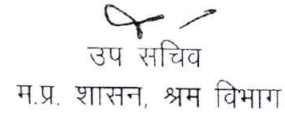 उप सचिव
म.प्र. शासन, श्रम विभाग